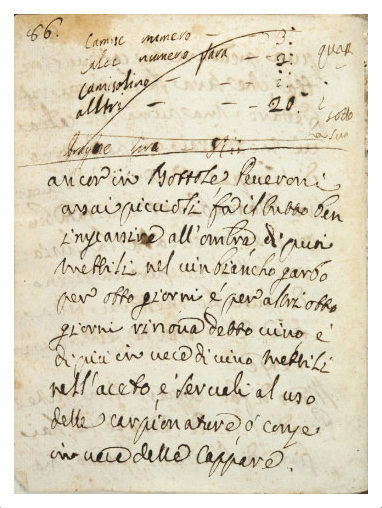 86.
Camise numero — 3:
Calse numero para — 2:
Camisolino — 
alltre — — 20
ancor in Bottole Peveroni
assai piccioli fa il tutto ben
all'ombra di puoi
mettili nel vin biancho garbo
per otto giorni é per altri otto
giorni rinova detto vino é
di piu in vece di vino mettili
nell'aceto é servali al uso
delle carpionature ó conze
in vece delle Cappare.